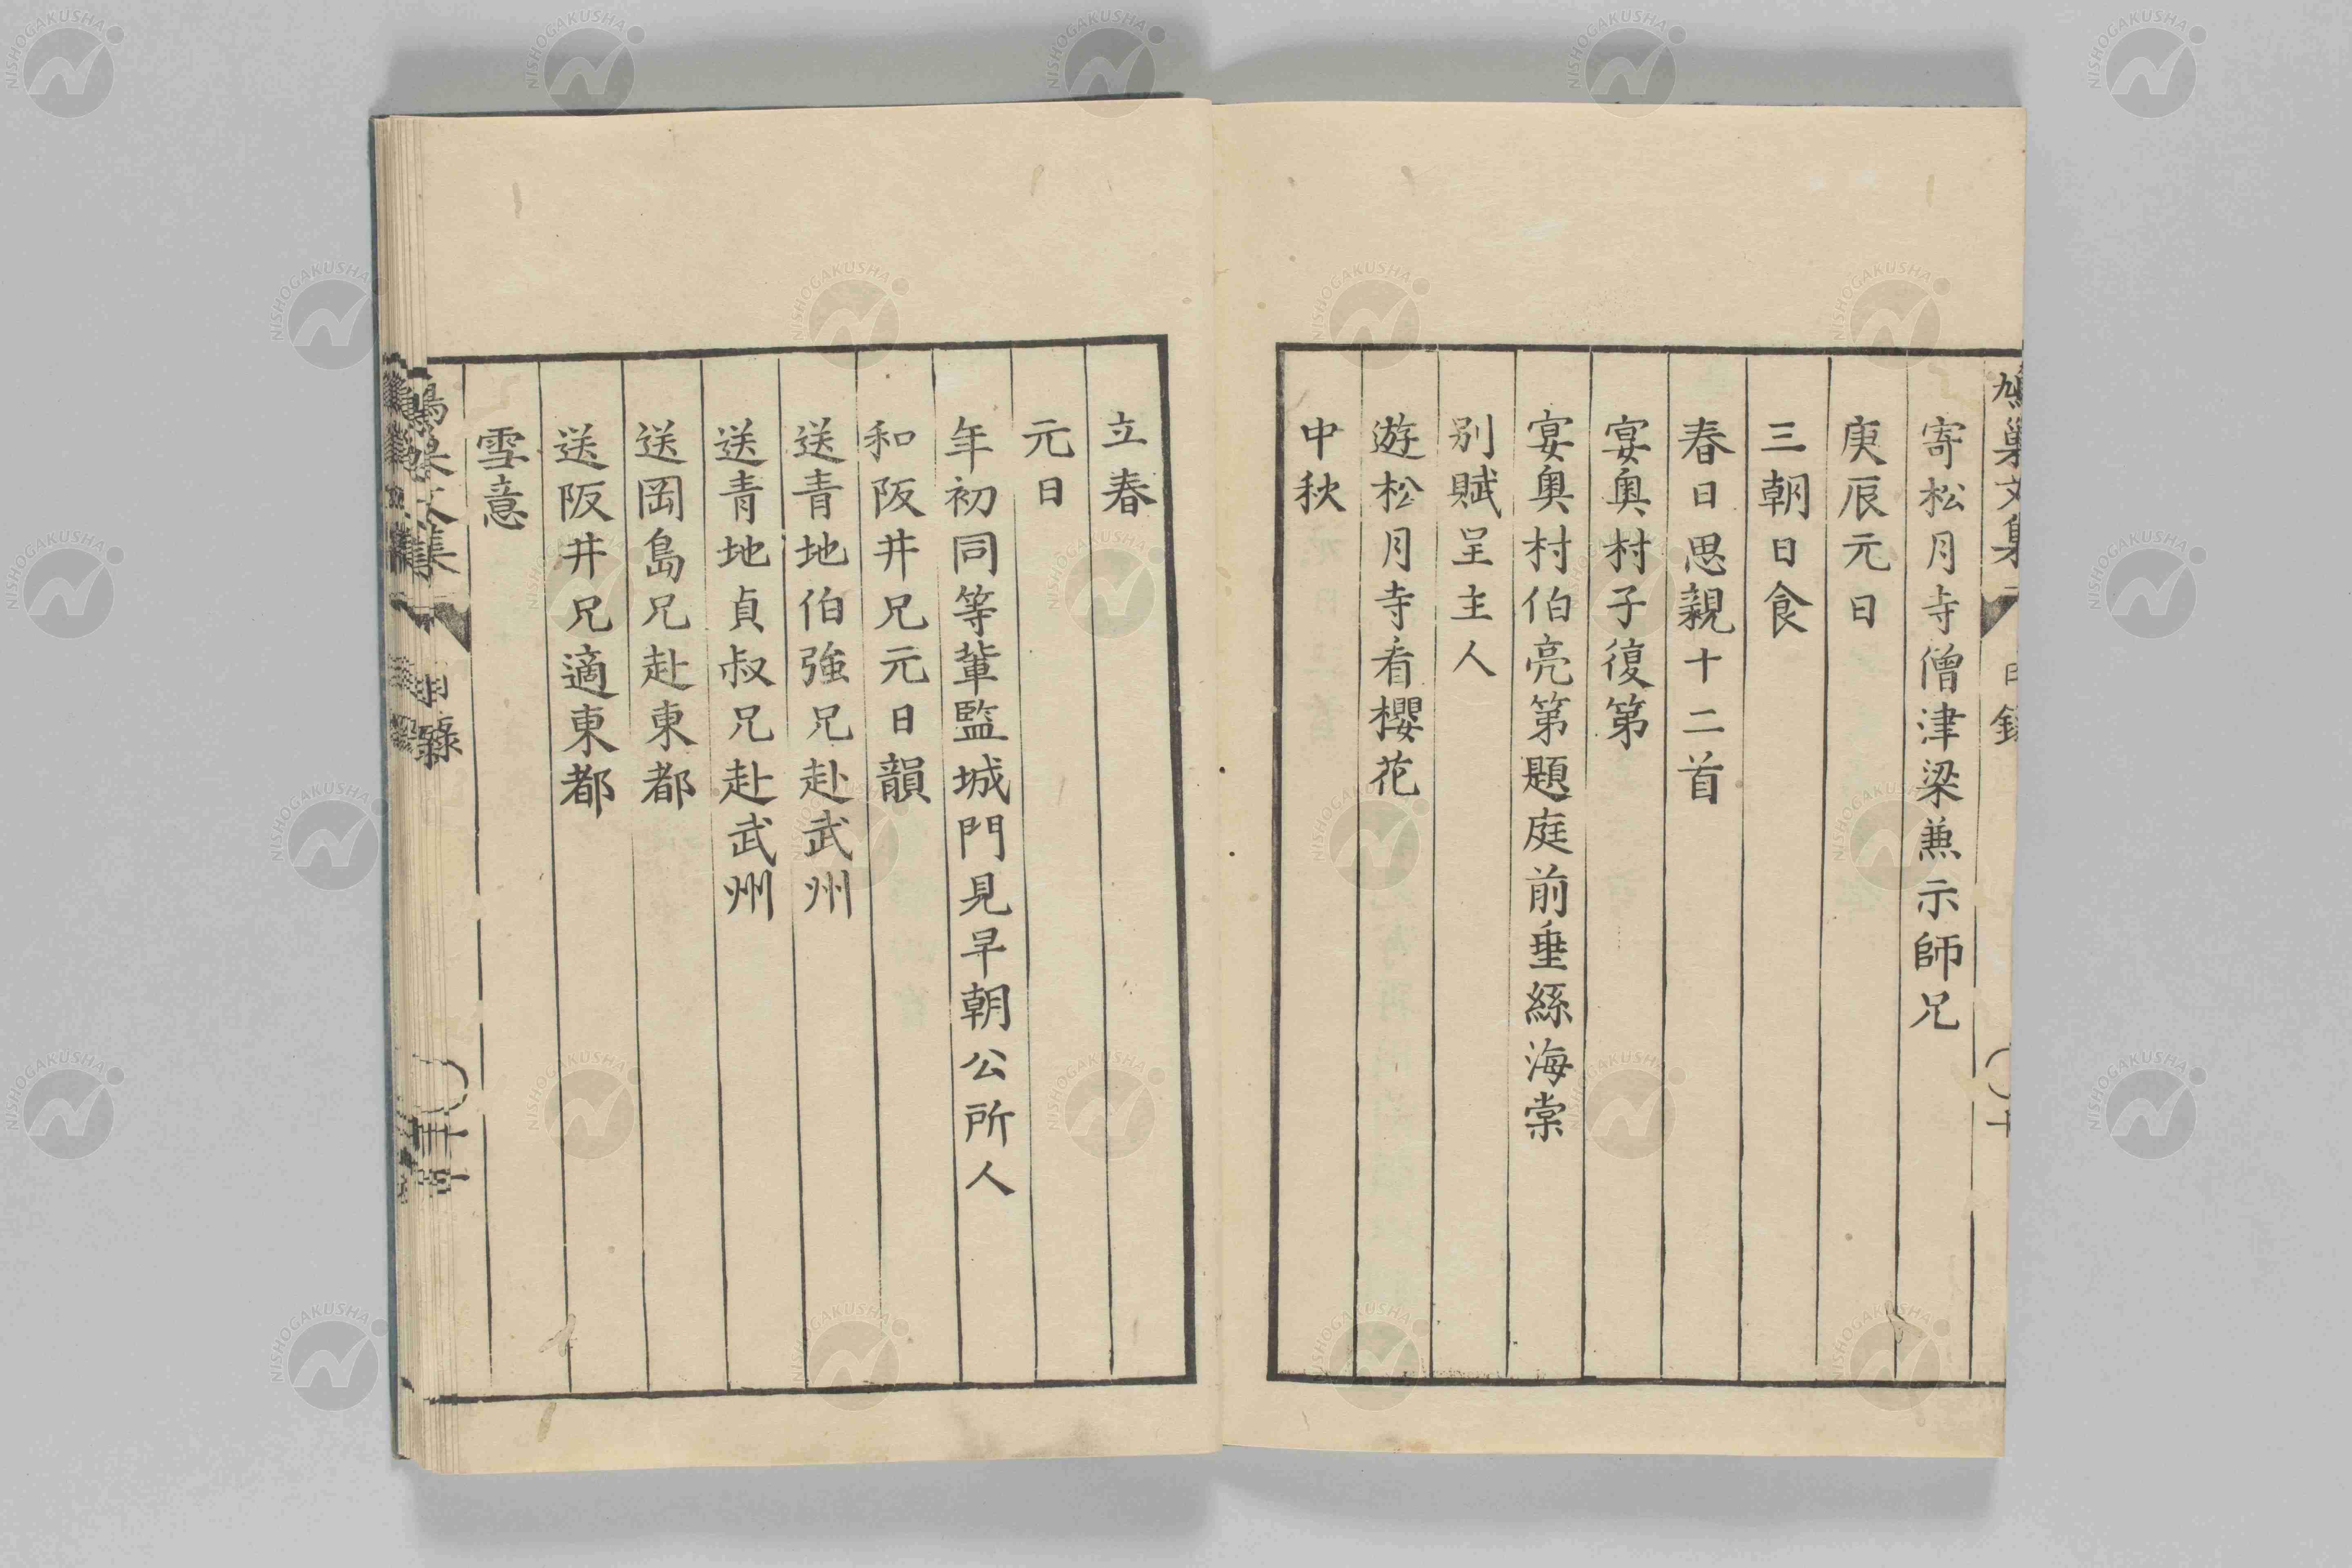 鳩巢文集
目錄
寄松月寺僧津梁兼示師兄
庚辰元日
三朝日食
春日思親十二首
宴奥村子復第
宴奥村伯亮第題庭前垂絲海棠
別賦呈主人
遊松月寺看櫻花
中秋
立春
元日
年初同等輩監城門見早朝公所人
和阪井兄元日韻
送青地伯強兄赴武州
送青地貞叔兄赴武州
送岡島兄赴東都
送阪井兄適東都
雪意
NISHOGAKUSHA